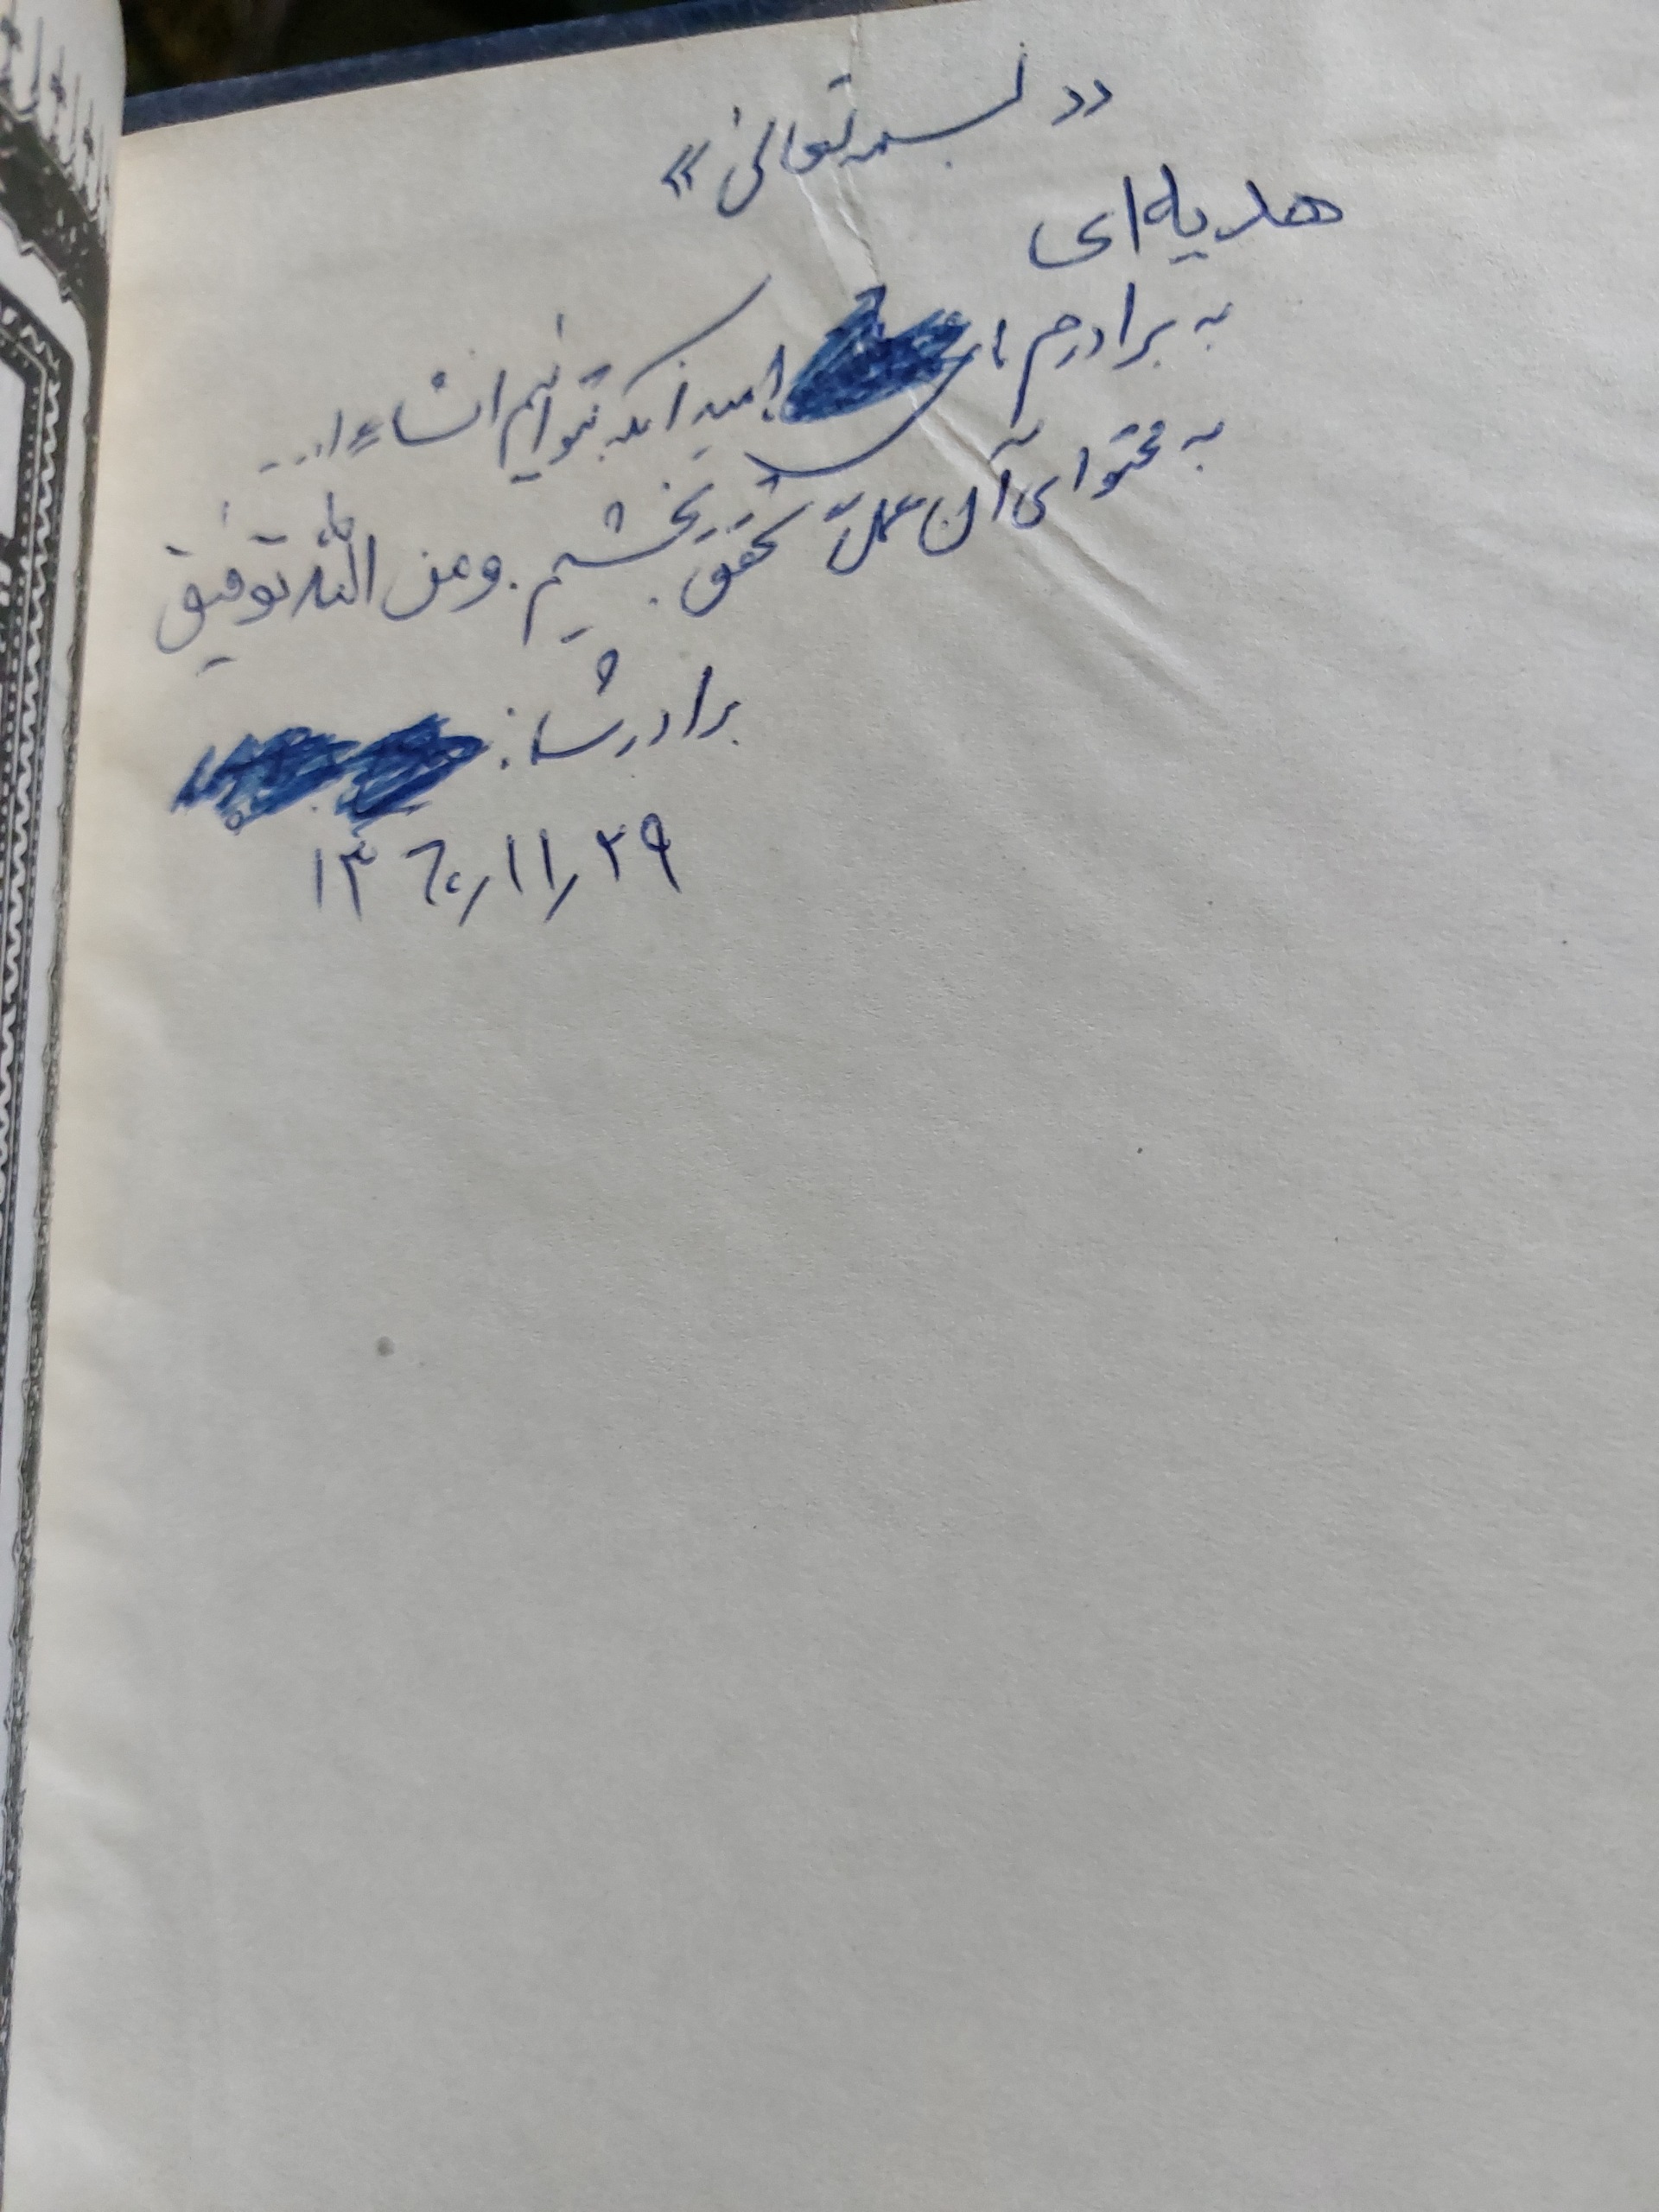 «بسمه تعالی»
هدیه‌ای
به برادرم، امید آنکه بتوانیم انشاءا...
به محتوای آن عملاً تحقق بخشیم. و من الله توفیق
برادر شما:
۱۳۶۰/۱۱/۲۹